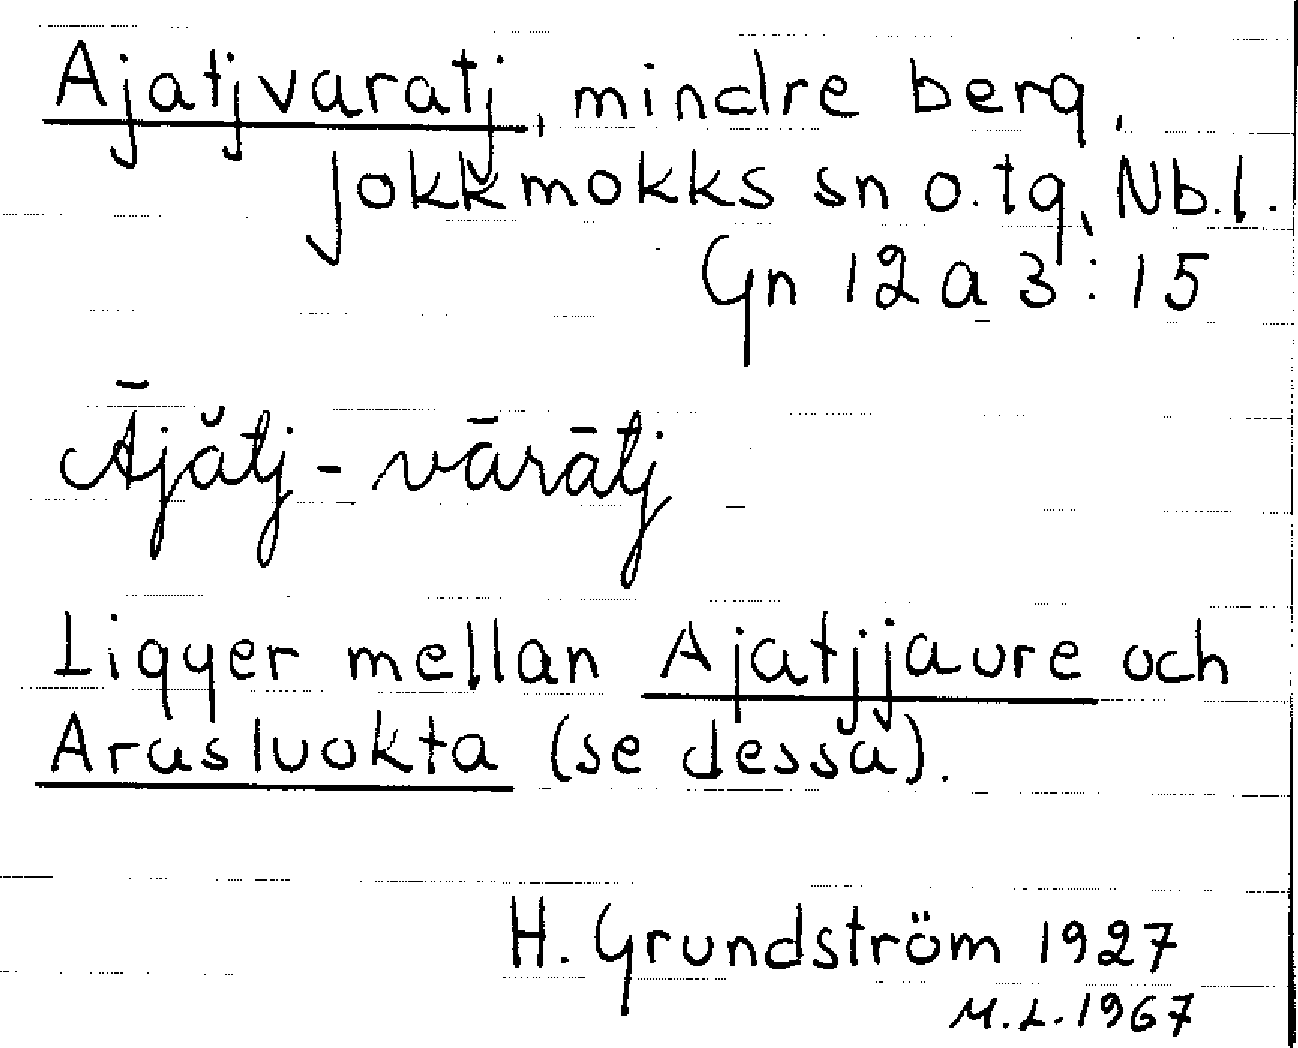 Ajatjvaratj, mindre berg,
Jokkmokks sn o. tg, Nb. l.
Gn 12 a 3 : 15
Ājătj - vārātj
Ligger mellan Ajatjjaure och
Arasluokta (se dessa).
H. Grundström 1927
M. L. 1967